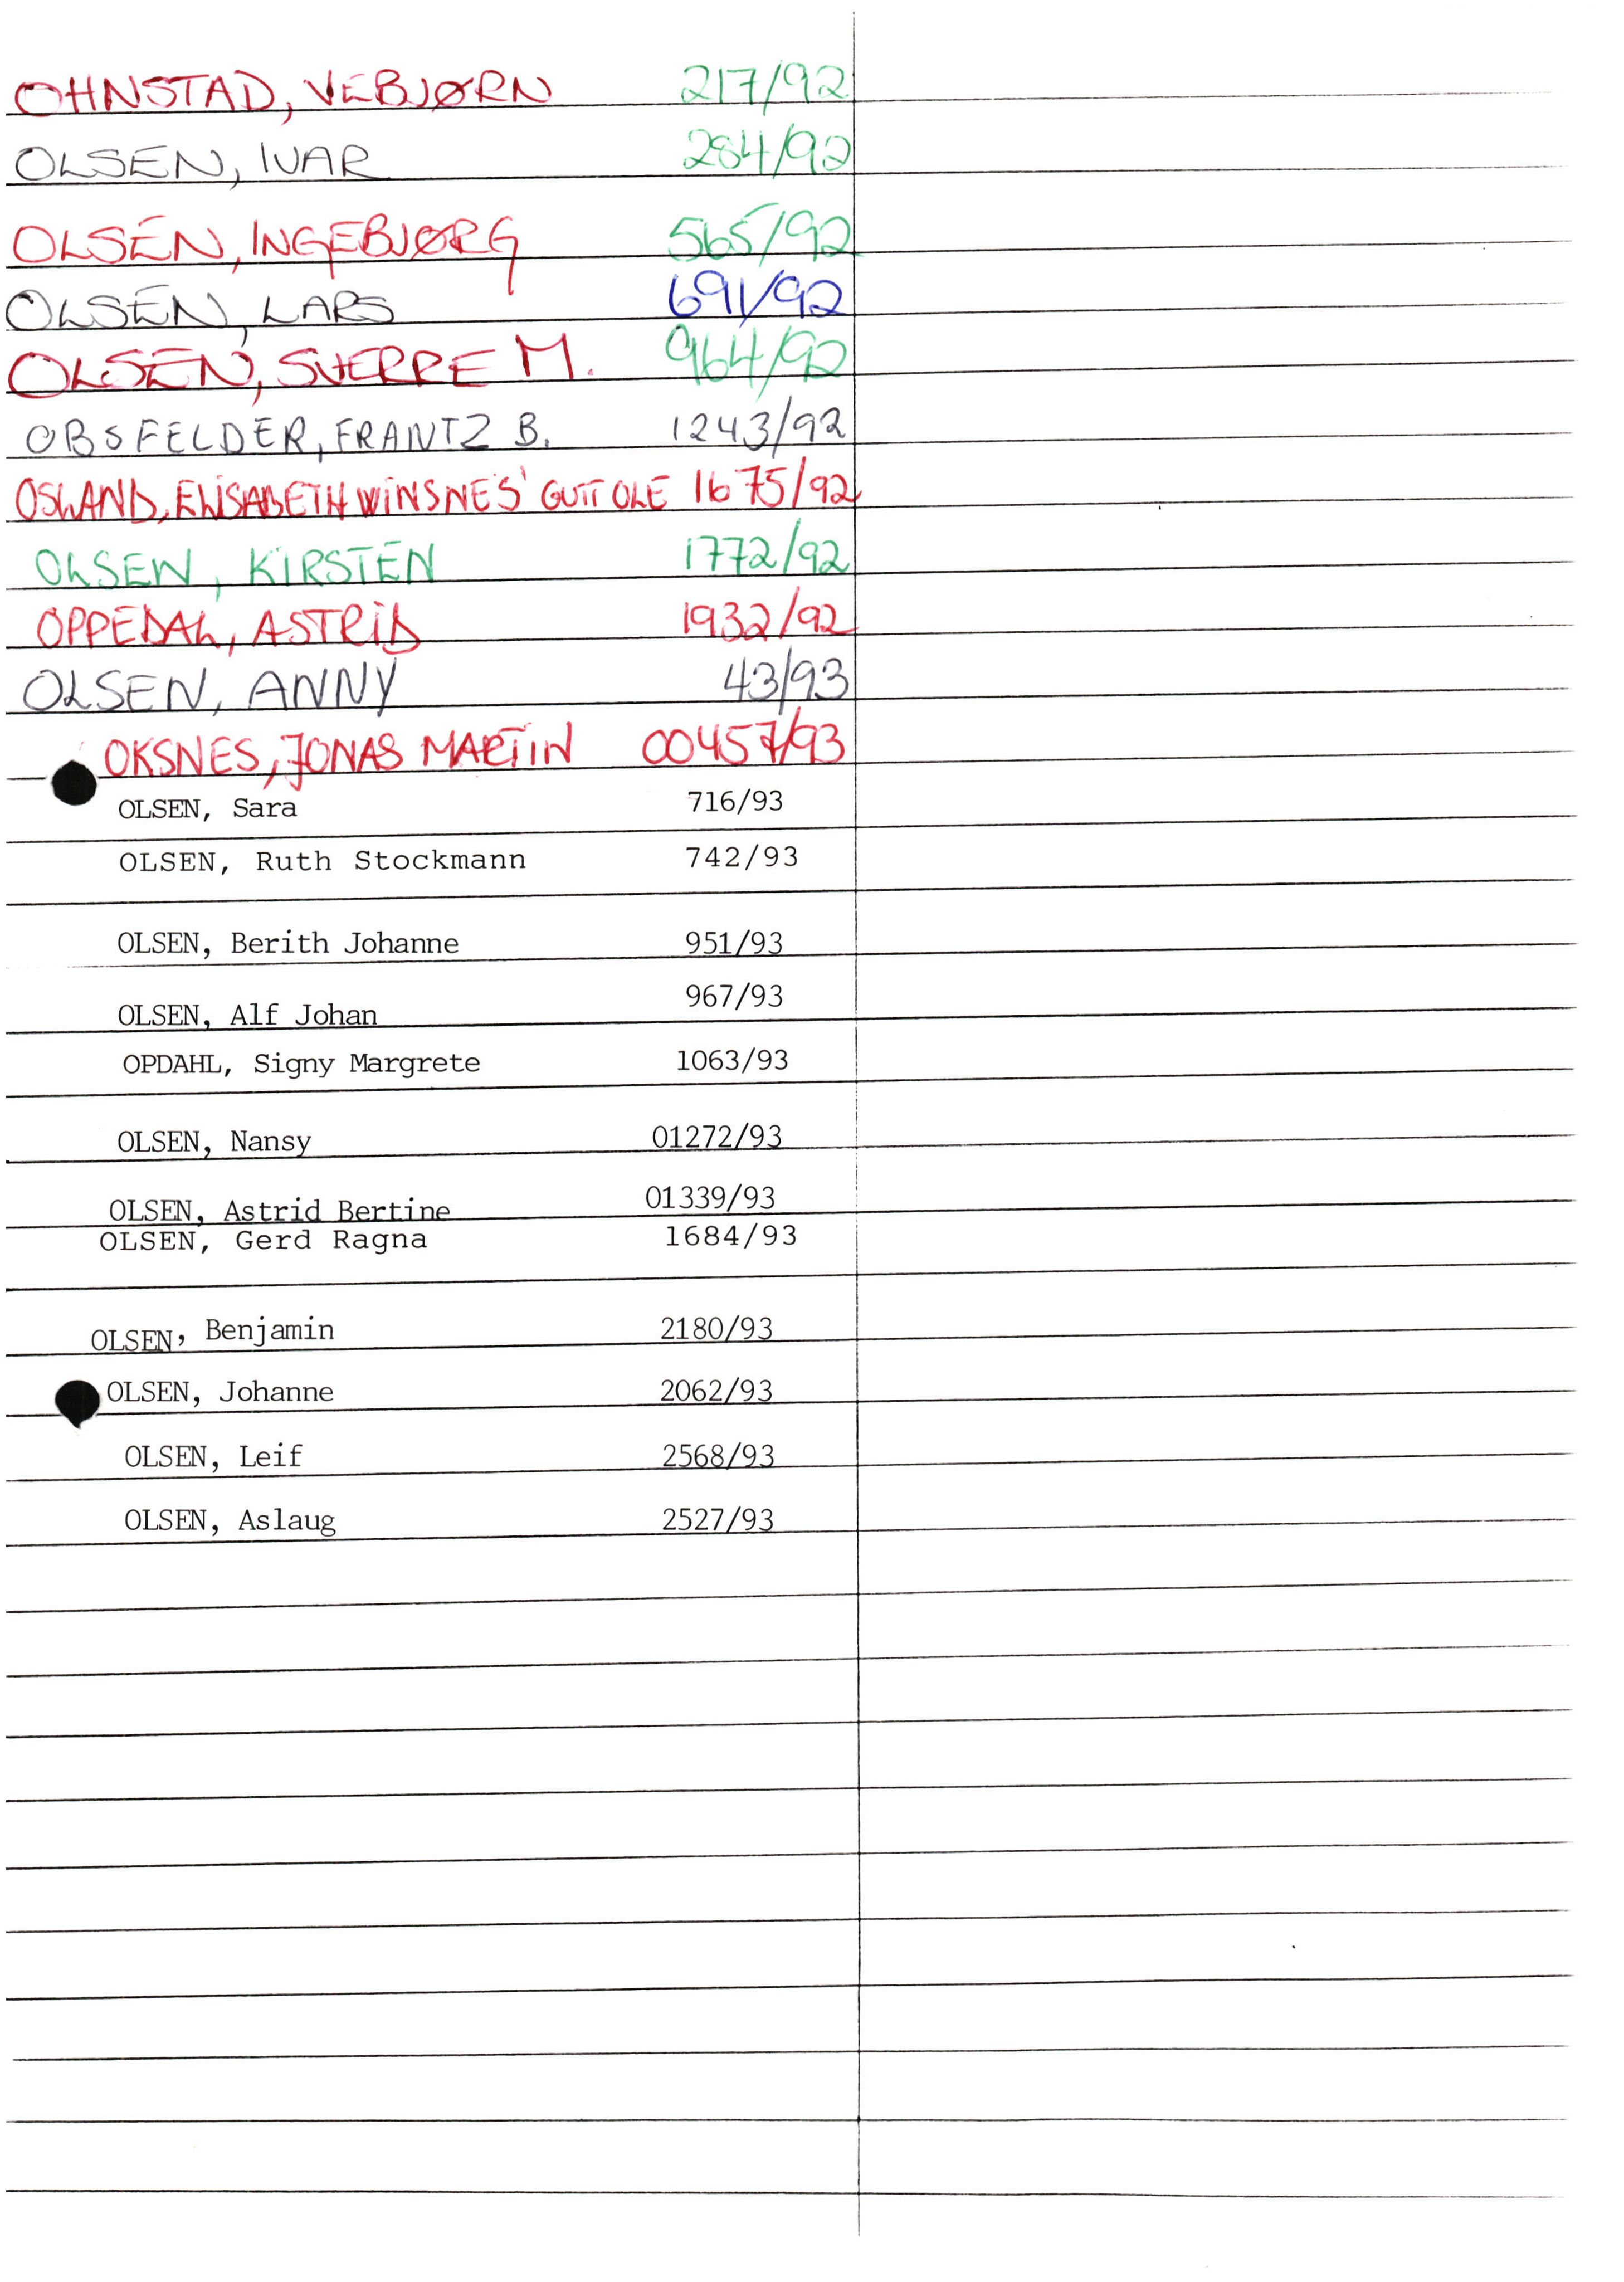 OHNSTAD, VEBJØRN 217/92
OLSEN, IVAR 284/92
OLSEN, INGEBJØRG 565/92
OLSEN, LARS 691/92
OLSEN, SVERRE M. 964/92
OBSFELDER, FRANTZ B. 1243/92
OSLAND, ELISABETH WINSNES' GUTT OLE 1675/92
OLSEN, KIRSTEN 1772/92
OPPEDAL, ASTRID 1932/92
OLSEN, ANNY 43/93
OKSNES, JONAS MARTIN 00457/93
OLSEN, Sara 716/93
OLSEN, Ruth Stockmann 742/93
OLSEN, Berith Johanne 951/93
OLSEN, Alf Johan 967/93
OPDAHL, Signy Margrete 1063/93
OLSEN, Nansy 01272/93
OLSEN, Astrid Bertine 01339/93
OLSEN, Gerd Ragna 1684/93
OLSEN, Benjamin 2180/93
OLSEN, Johanne 2062/93
OLSEN, Leif 2568/93
OLSEN, Aslaug 2527/93